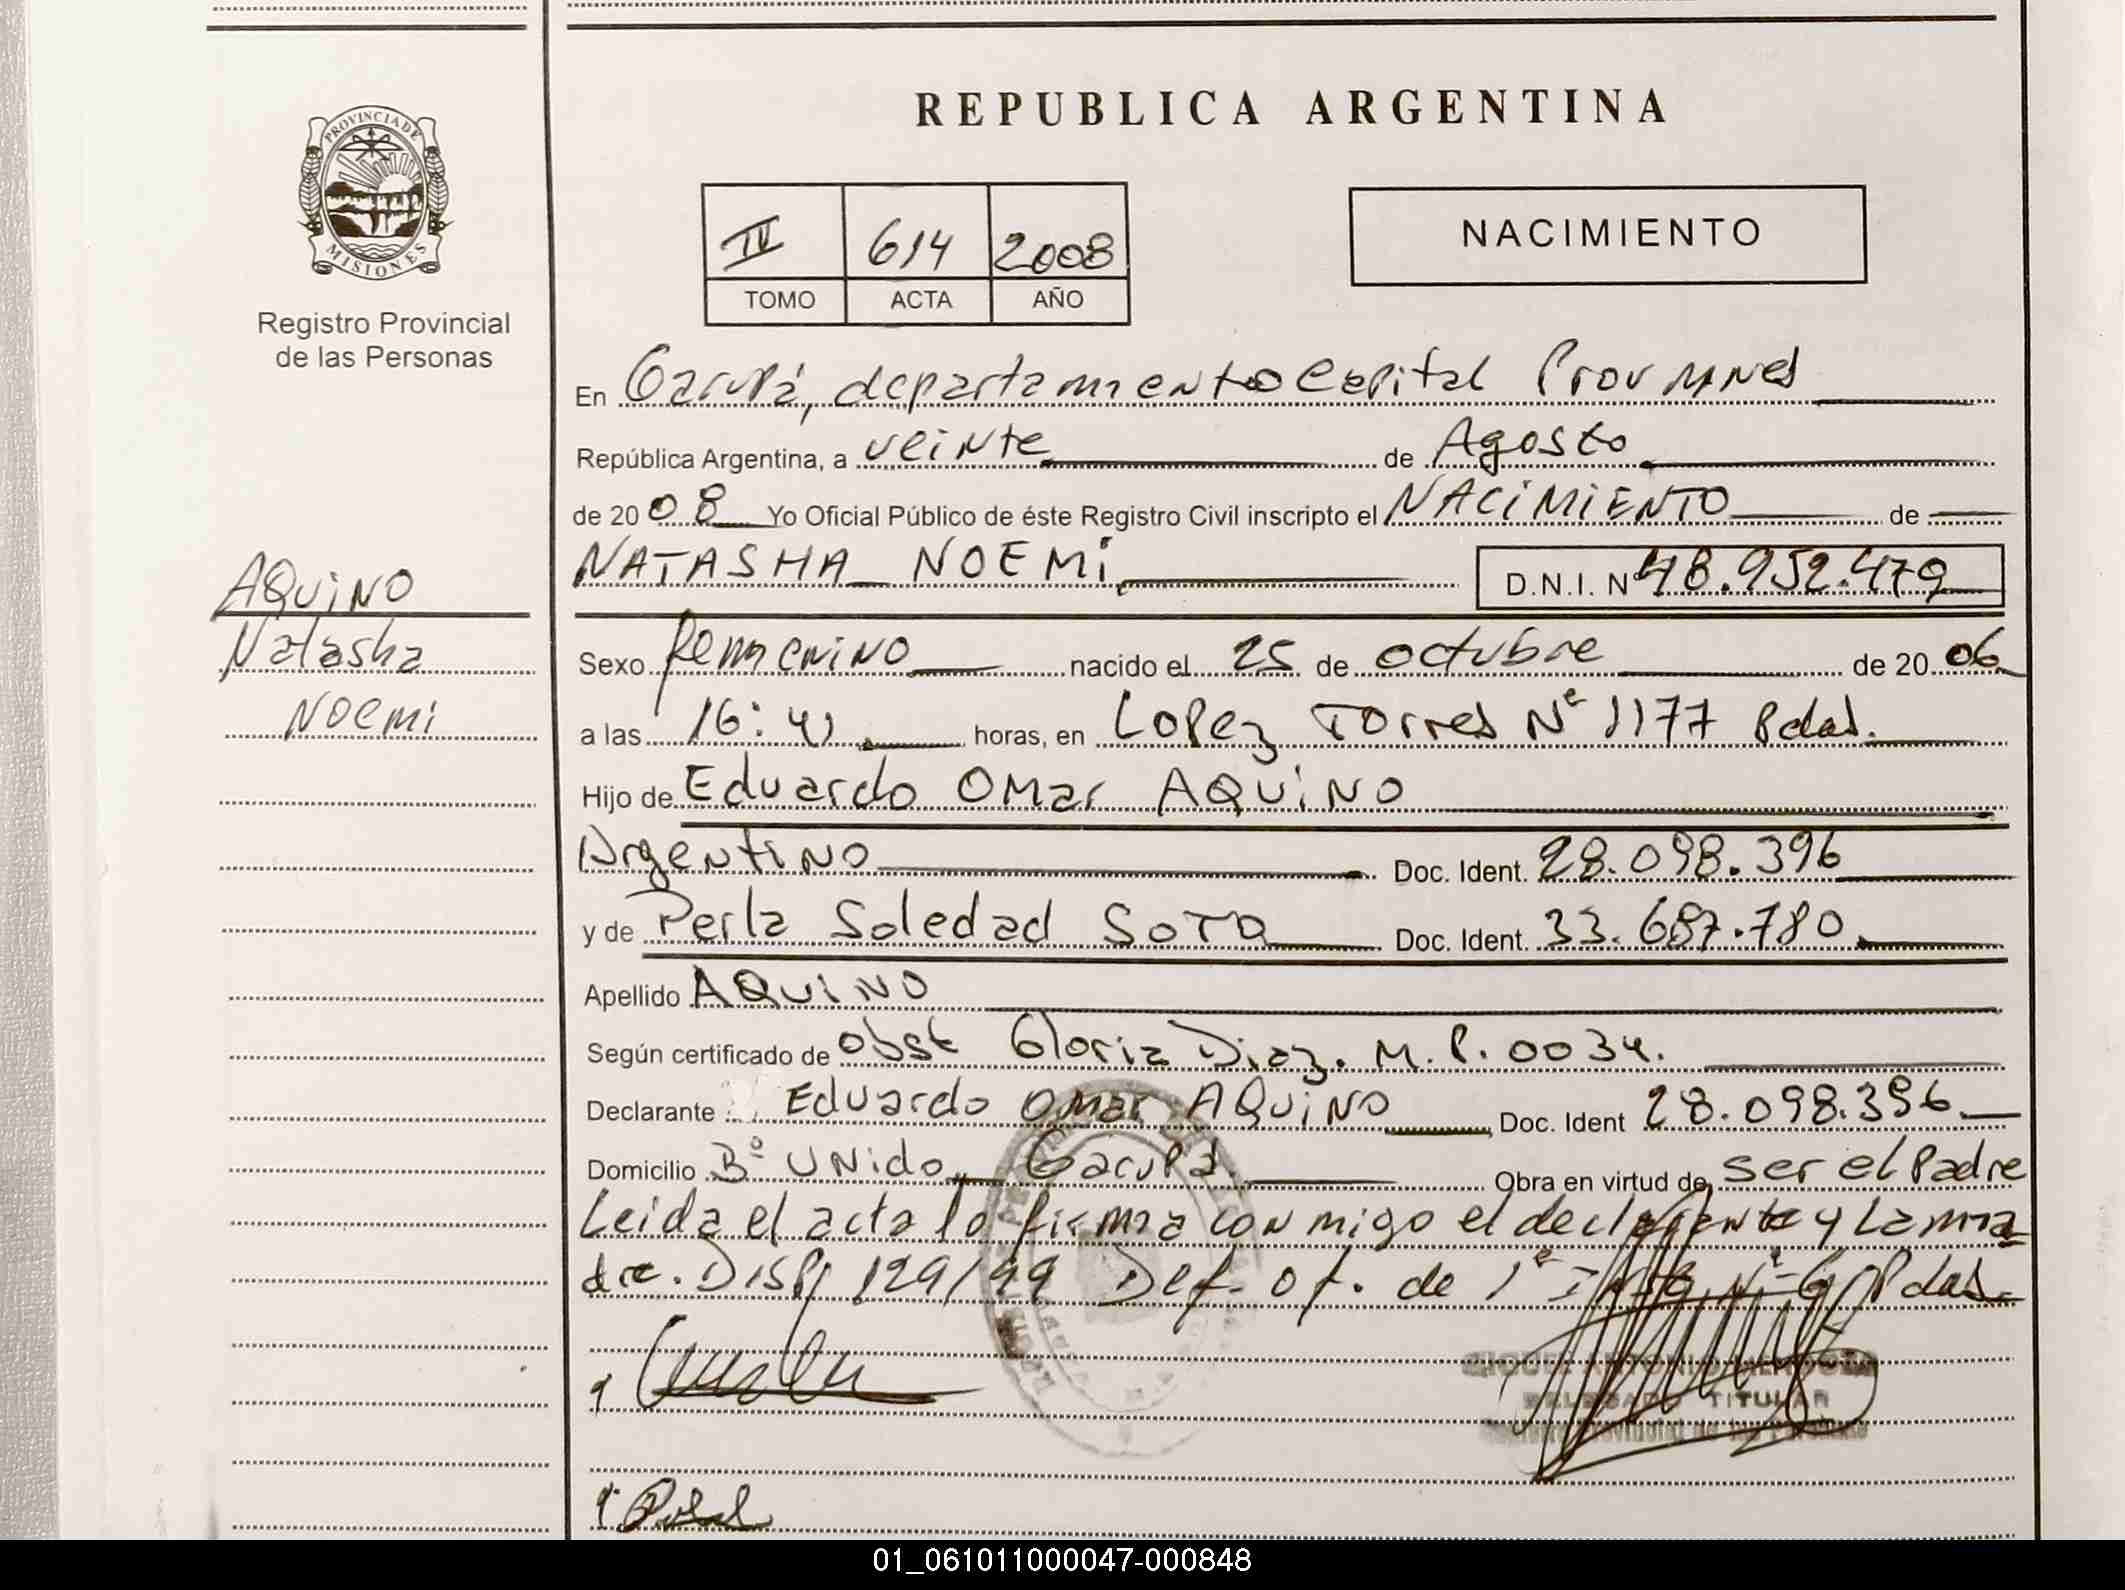 REPUBLICA ARGENTINA
PROVINCIA DE
MISIONES
Registro Provincial
de las Personas
IV 614 2008
TOMO ACTA AÑO
NACIMIENTO
En Garupá, departamento Capital Prov Mnes
República Argentina, a veinte de Agosto
de 2008 Yo Oficial Público de éste Registro Civil inscripto el NACIMIENTO de
NATASHA NOEMI D.N.I. Nº 48.952.479
AQUINO
Natasha
Noemi
Sexo femenino nacido el 25 de octubre de 2006
a las 16:41 horas, en Lopez Torres Nº 1177 Pdas.
Hijo de Eduardo Omar AQUINO
Argentino Doc. Ident. 28.098.396
y de Perla Soledad SOTO Doc. Ident. 33.687.780
Apellido AQUINO
Según certificado de obst Gloria Diaz. M.P. 0034.
Declarante Eduardo Omar AQUINO Doc. Ident 28.098.396
Domicilio Bº UNido Garupá. Obra en virtud de ser el Padre
Leida el acta lo firma conmigo el declarante y la ma-
dre. Disp 129/99 Def. of. de 1º Inst. Nº 6 Pdas.
DELEGADO TITULAR
Registro Provincial de las Personas
01_061011000047-000848